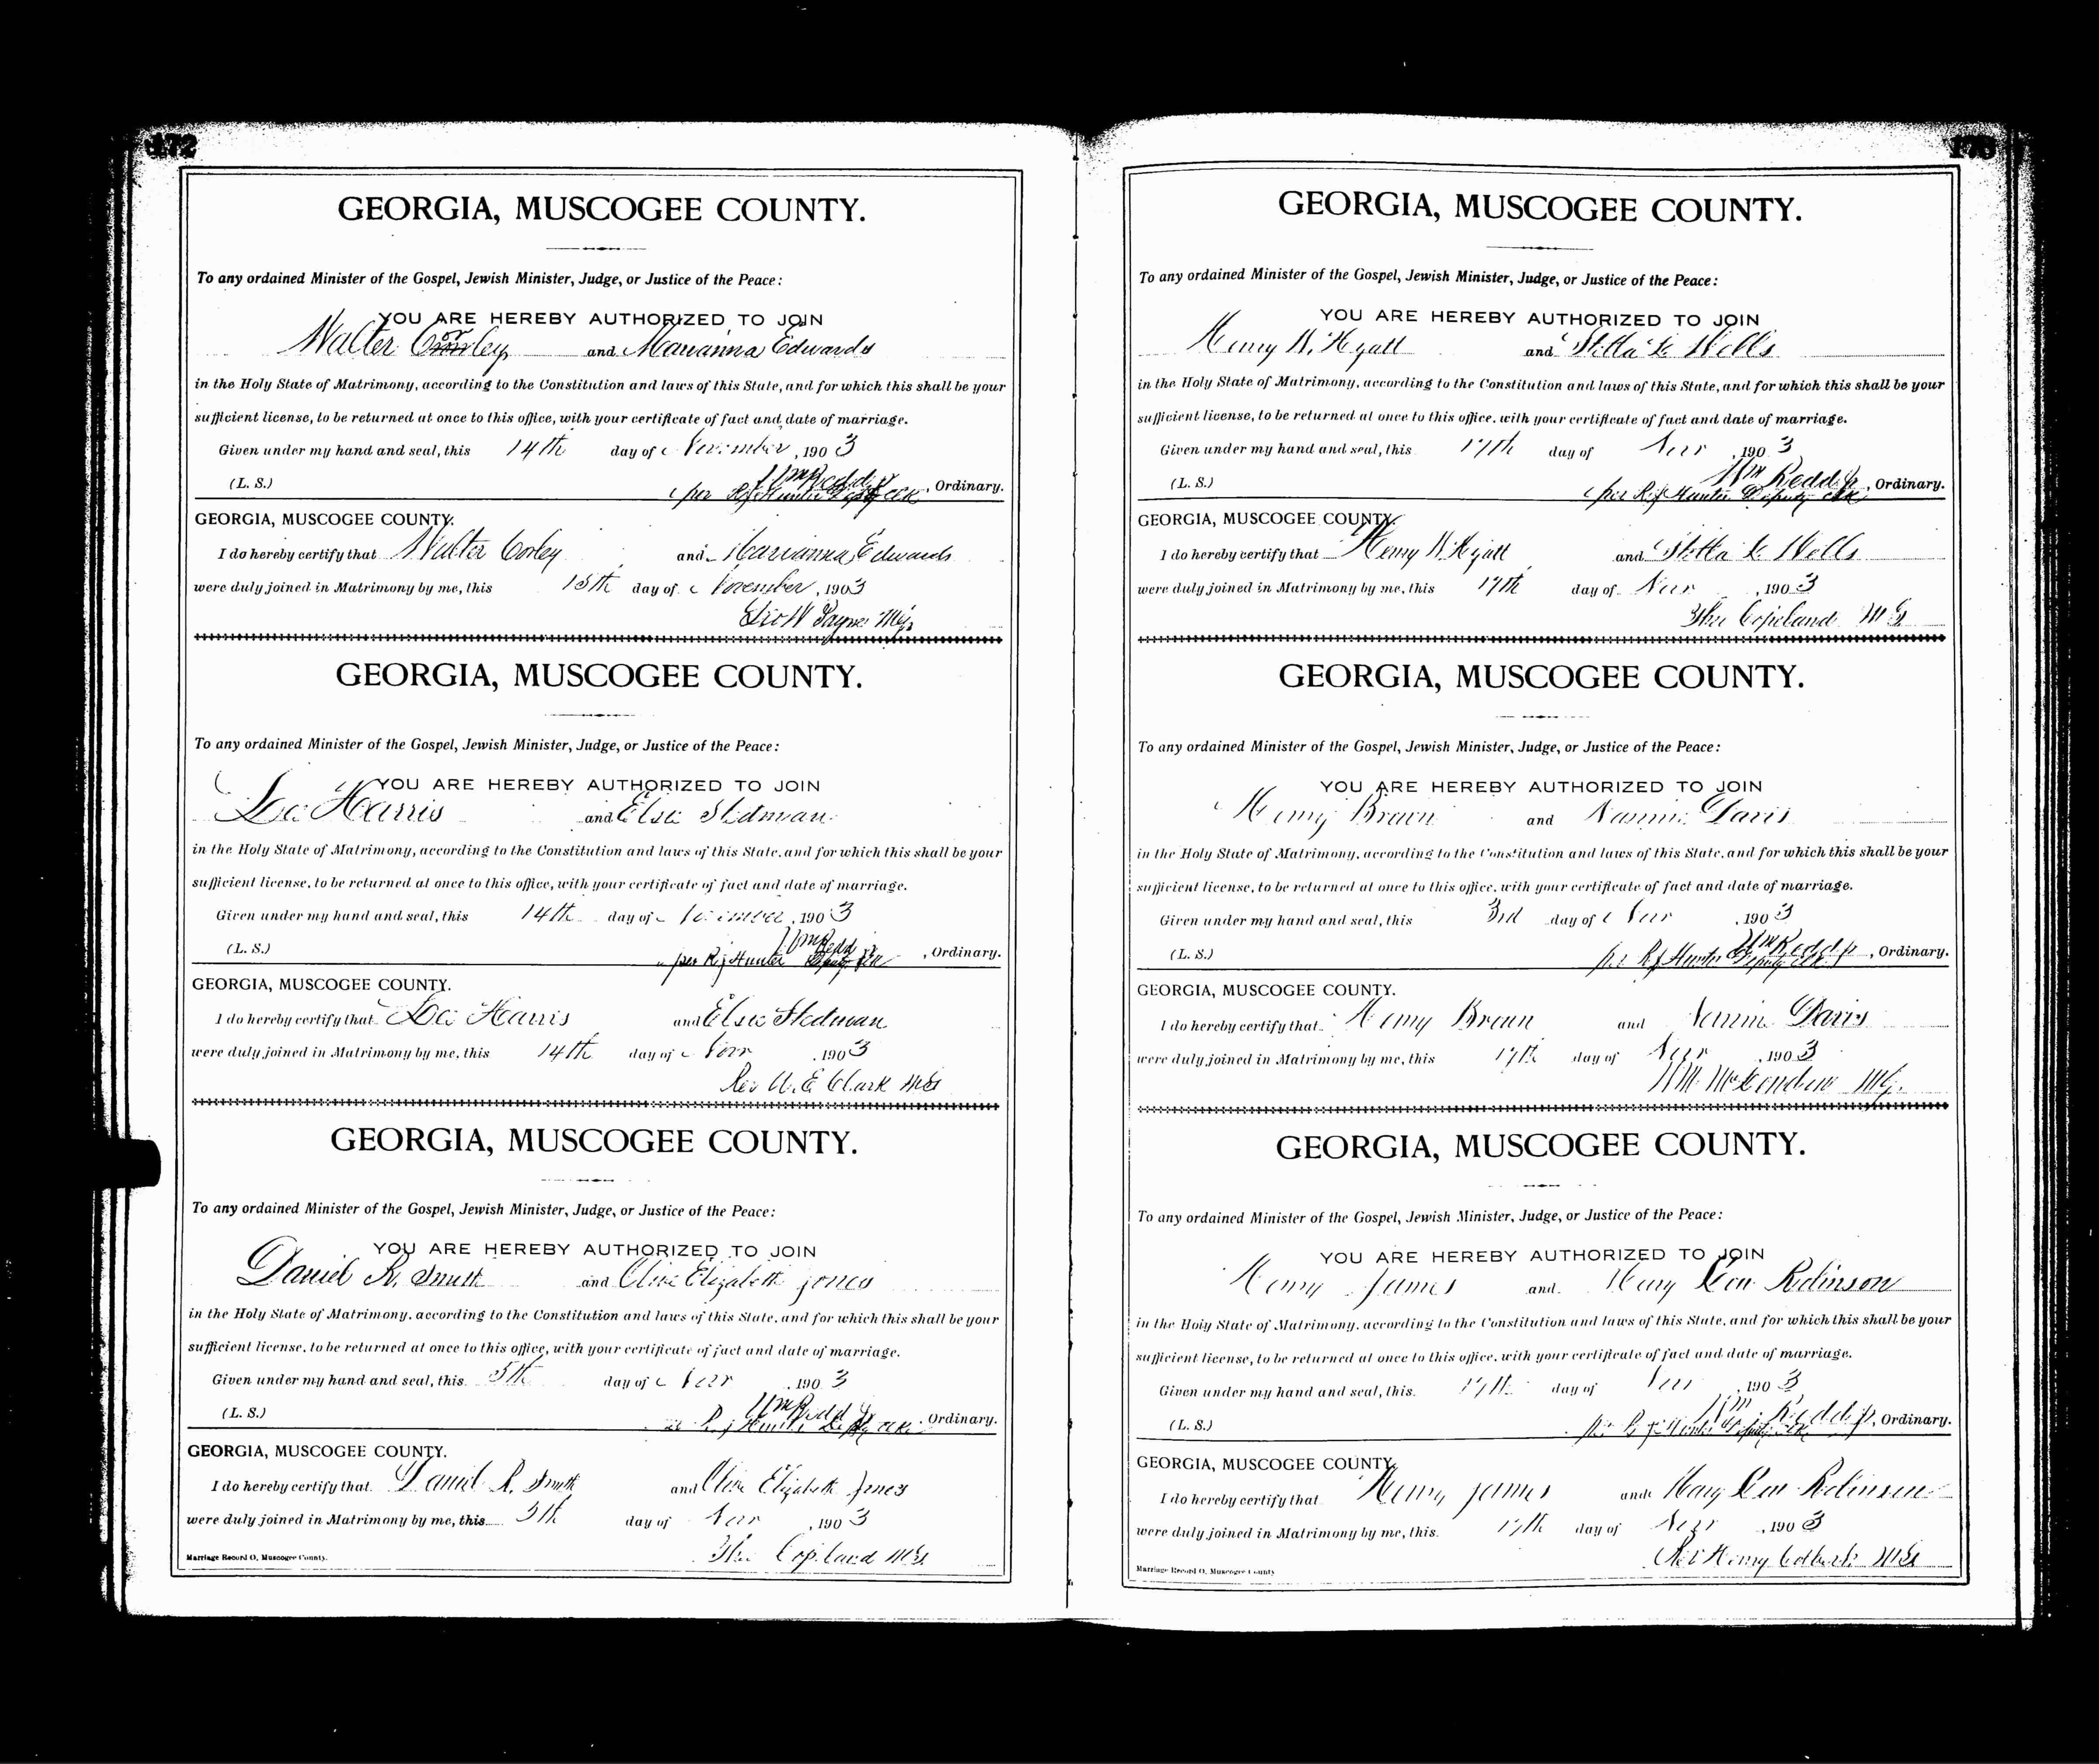 172
GEORGIA, MUSCOGEE COUNTY.
To any ordained Minister of the Gospel, Jewish Minister, Judge, or Justice of the Peace:
YOU ARE HEREBY AUTHORIZED TO JOIN
Walter Corley and Marianna Edwards
in the Holy State of Matrimony, according to the Constitution and laws of this State, and for which this shall be your
sufficient license, to be returned at once to this office, with your certificate of fact and date of marriage.
Given under my hand and seal, this 14th day of November, 1903
(L. S.) Wm Redd Jr
per R J Hunter Deputy Clk, Ordinary.
GEORGIA, MUSCOGEE COUNTY.
I do hereby certify that Walter Corley and Marianna Edwards
were duly joined in Matrimony by me, this 15th day of November, 1903
Payne MG
GEORGIA, MUSCOGEE COUNTY.
To any ordained Minister of the Gospel, Jewish Minister, Judge, or Justice of the Peace:
YOU ARE HEREBY AUTHORIZED TO JOIN
Harris and Elsie Stedman
in the Holy State of Matrimony, according to the Constitution and laws of this State, and for which this shall be your
sufficient license, to be returned at once to this office, with your certificate of fact and date of marriage.
Given under my hand and seal, this 14th day of November, 1903
(L. S.) Wm Redd
per R J Hunter Deputy Clk, Ordinary.
GEORGIA, MUSCOGEE COUNTY.
I do hereby certify that Harris and Elsie Stedman
were duly joined in Matrimony by me, this 14th day of Nov, 1903
Rev E Clark MG
GEORGIA, MUSCOGEE COUNTY.
To any ordained Minister of the Gospel, Jewish Minister, Judge, or Justice of the Peace:
YOU ARE HEREBY AUTHORIZED TO JOIN
Daniel R. Smith and Olive Elizabeth Jones
in the Holy State of Matrimony, according to the Constitution and laws of this State, and for which this shall be your
sufficient license, to be returned at once to this office, with your certificate of fact and date of marriage.
Given under my hand and seal, this 5th day of Nov, 1903
(L. S.) Wm Redd Jr
R J Hunter Deputy Clk, Ordinary.
GEORGIA, MUSCOGEE COUNTY.
I do hereby certify that Daniel R. Smith and Olive Elizabeth Jones
were duly joined in Matrimony by me, this 5th day of Nov, 1903
Theo Copeland MG
Marriage Record O, Muscogee County.
173
GEORGIA, MUSCOGEE COUNTY.
To any ordained Minister of the Gospel, Jewish Minister, Judge, or Justice of the Peace:
YOU ARE HEREBY AUTHORIZED TO JOIN
Henry W. Hyatt and Stella L. Wells
in the Holy State of Matrimony, according to the Constitution and laws of this State, and for which this shall be your
sufficient license, to be returned at once to this office, with your certificate of fact and date of marriage.
Given under my hand and seal, this 17th day of Nov, 1903
(L. S.) Wm Redd Jr
per R J Hunter Deputy Clk, Ordinary.
GEORGIA, MUSCOGEE COUNTY.
I do hereby certify that Henry W. Hyatt and Stella L. Wells
were duly joined in Matrimony by me, this 17th day of Nov, 1903
Theo Copeland MG
GEORGIA, MUSCOGEE COUNTY.
To any ordained Minister of the Gospel, Jewish Minister, Judge, or Justice of the Peace:
YOU ARE HEREBY AUTHORIZED TO JOIN
Henry Brown and Nannie Davis
in the Holy State of Matrimony, according to the Constitution and laws of this State, and for which this shall be your
sufficient license, to be returned at once to this office, with your certificate of fact and date of marriage.
Given under my hand and seal, this 3rd day of Nov, 1903
(L. S.) Wm Redd Jr
per R J Hunter Deputy Clk, Ordinary.
GEORGIA, MUSCOGEE COUNTY.
I do hereby certify that Henry Brown and Nannie Davis
were duly joined in Matrimony by me, this 17th day of Nov, 1903
MG
GEORGIA, MUSCOGEE COUNTY.
To any ordained Minister of the Gospel, Jewish Minister, Judge, or Justice of the Peace:
YOU ARE HEREBY AUTHORIZED TO JOIN
Henry James and Mary Robinson
in the Holy State of Matrimony, according to the Constitution and laws of this State, and for which this shall be your
sufficient license, to be returned at once to this office, with your certificate of fact and date of marriage.
Given under my hand and seal, this 17th day of Nov, 1903
(L. S.) Wm Redd Jr
per R J Hunter Deputy Clk, Ordinary.
GEORGIA, MUSCOGEE COUNTY.
I do hereby certify that Henry James and Mary Robinson
were duly joined in Matrimony by me, this 17th day of Nov, 1903
Rev Henry Colbert MG
Marriage Record O, Muscogee County